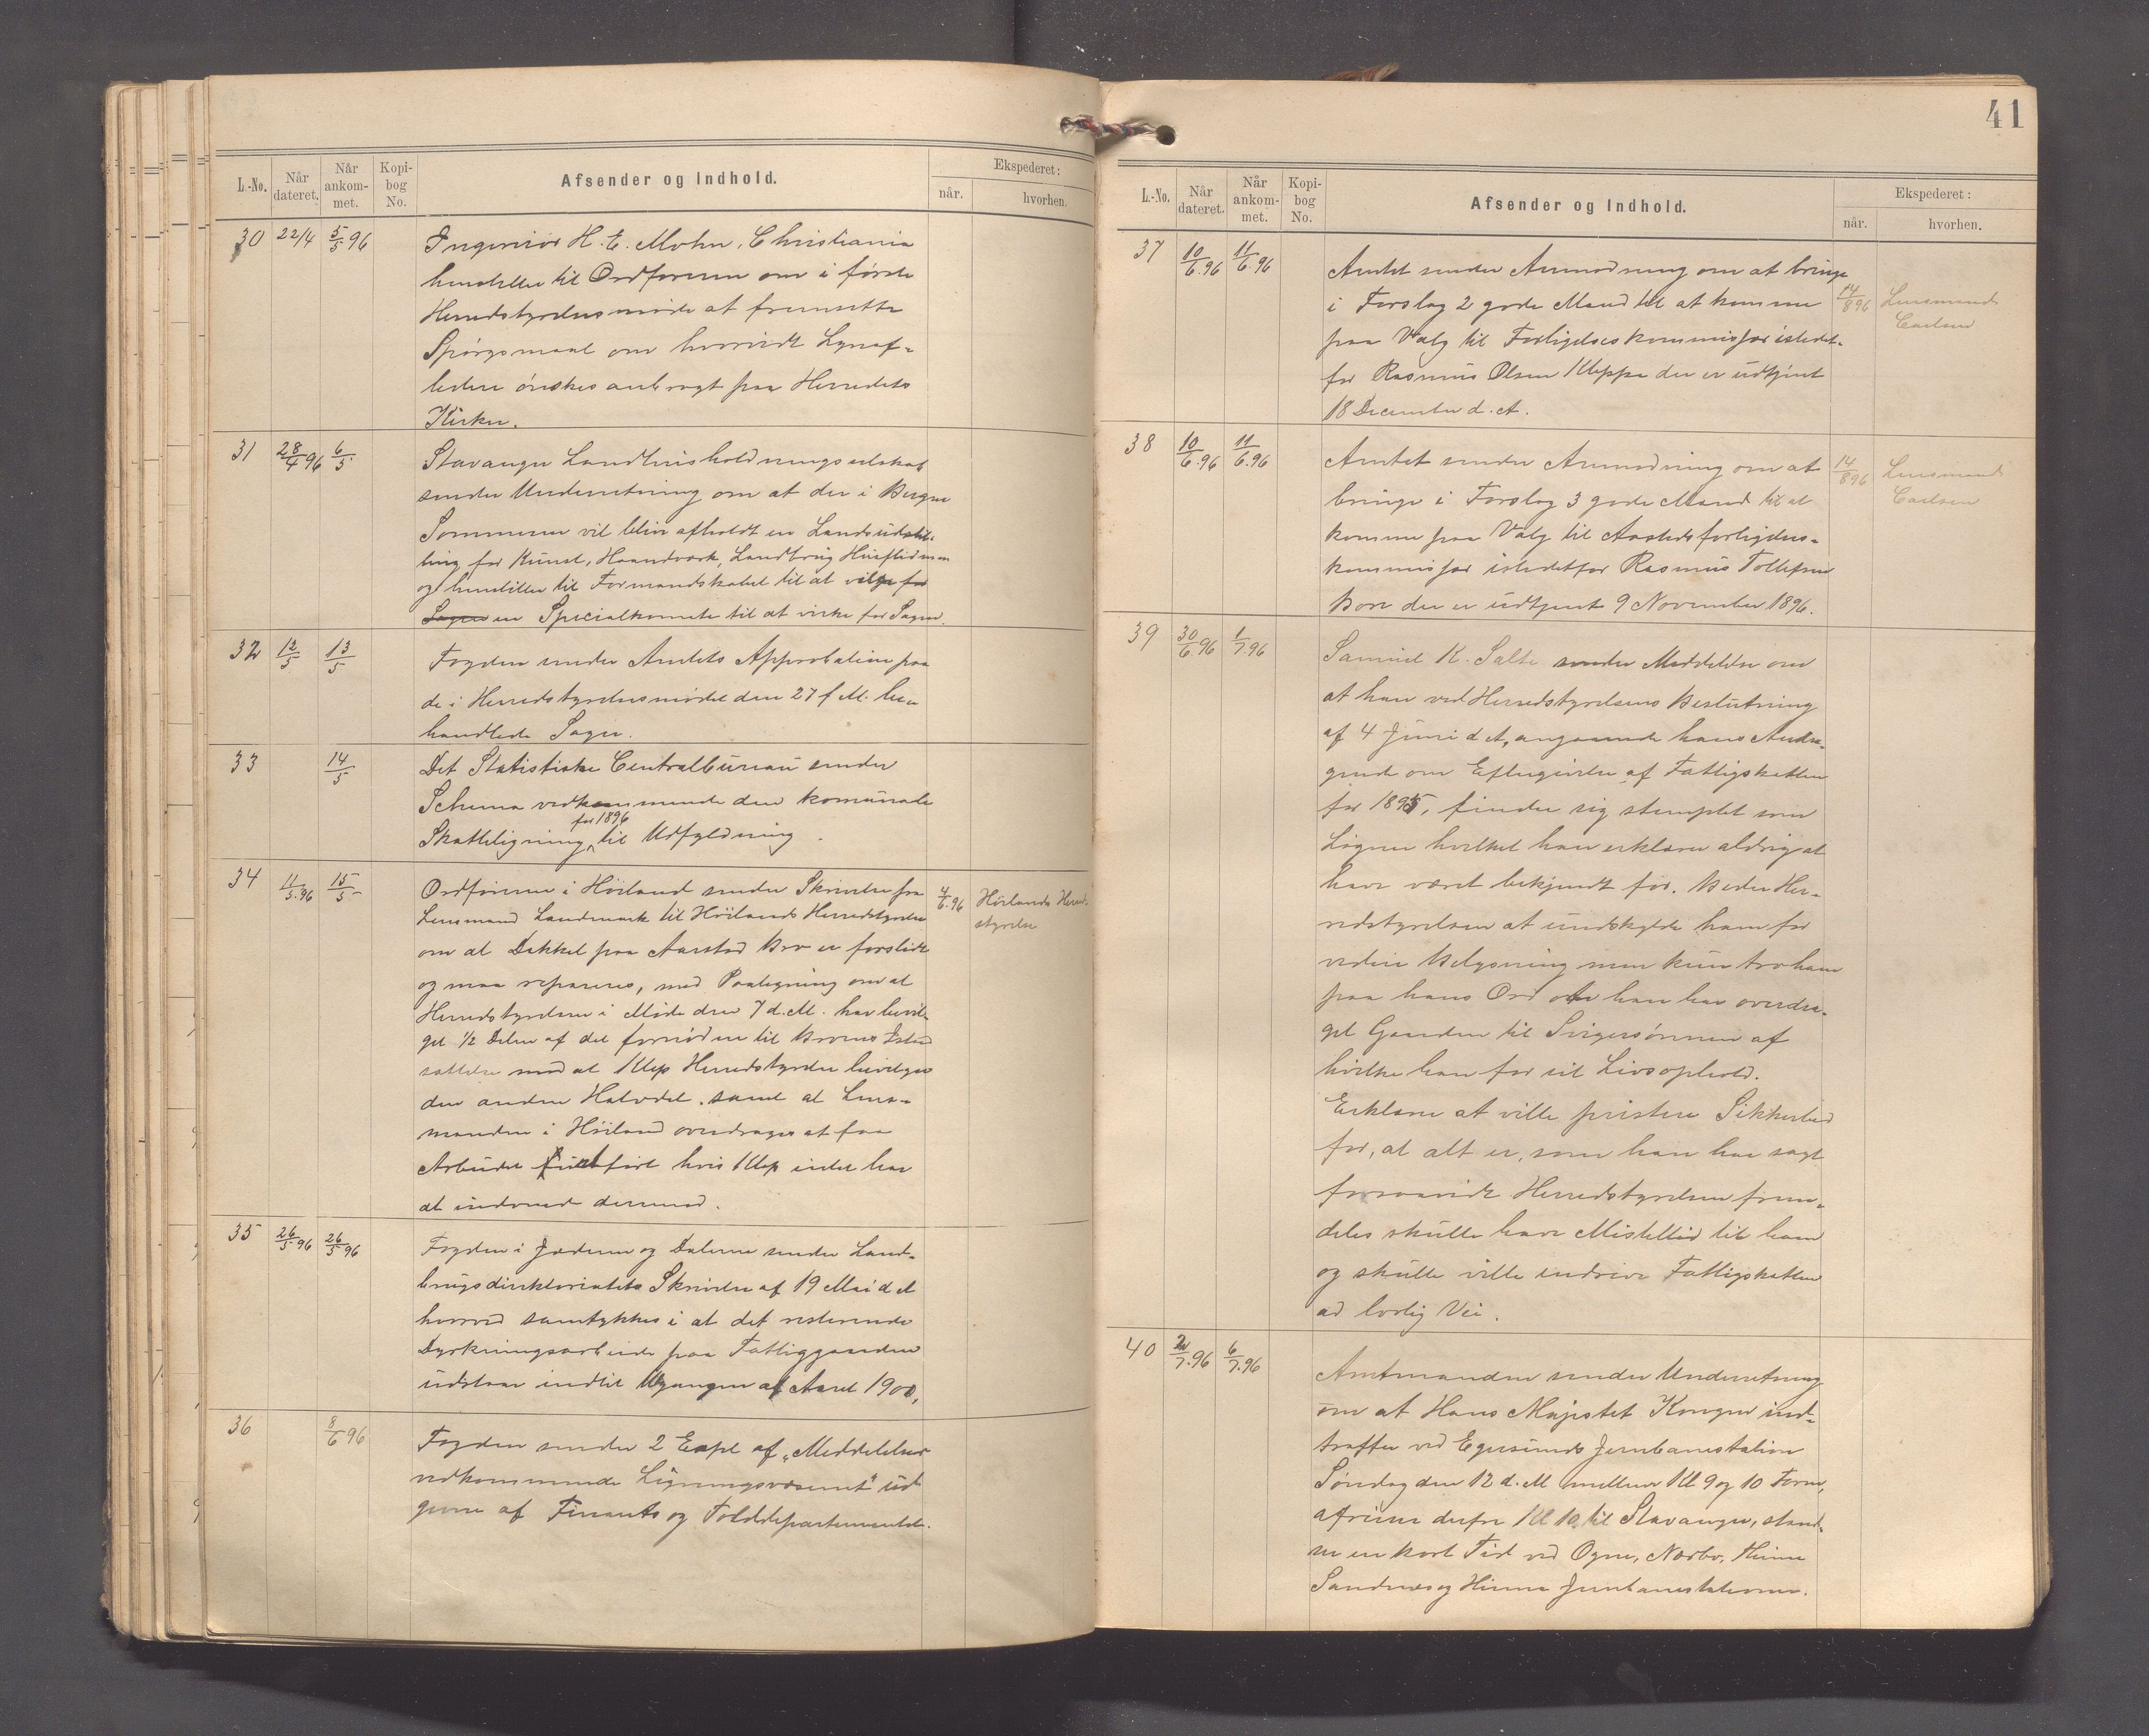 L.-No. Når dateret. Når ankom- met. Kopi- bog No. Afsender og Indhold. Ekspederet: når. hvorhen.
30 22/4 5/5 96 Ingeniør H. E. Mohn, Christiania
henstiller til Ordføreren om i første
Herredstyrelsesmøde at fremsette
Spörgsmaal om hvorvidt Lynaf-
ledere ønskes anbragt paa Herredets
Kirker.
31 28/4 96 6/5 Stavanger Landhusholdningsselskab
sender Underretning om at der i Bergen
Sommeren vil blive afholdt en Landsudstil-
ling for Kunst, Haandværk, Landbrug Husflid m m
og henstiller til Formandskabet til at velge for
Sagen en Specialkomite til at virke for Sagen.
32 12/5 13/5 Fogden sender Amtets Approbation paa
de i Herredstyrelsesmödet den 27 f. M. be-
handlede Sager.
33 14/5 Det Statistiske Centralbureau sender
Schema vedkommende den komunale
for 1896
Skatteligning til Udfyldning.
34 11/5.96 15/5 Ordføreren i Höiland sender Skrivelse fra 4/6.96 Höilands Herred-
Lensmand Landmark til Höilands Herredstyrelse styrelse
om at Dekket paa Aarstad Bro er forslidt
og maa repareres, med Paategning om at
Herredstyrelsen i Möde den 7 d. M. har bevil-
get 1/2 Delen af det fornødne til Broens Istand
sættelse mod at Klep Herredstyrelse bevilger
den anden Halvdel, samt at Lens-
manden i Höiland overdrages at faa
Arbeidet udført hvis Klep intet har
at indvende dermed.
35 26/5 96 26/5 96 Fogden i Jæderen og Dalerne sender Land-
brugsdirektoriatets Skrivelse af 19 Mai d. A
hvorved samtykkes i at det resterende
Dyrkningsarbeide paa Fattiggaarden
udstaar indtil Udgangen af Aaret 1900,
36 8/6 96 Fogden sender 2 Expl af „Meddelelser
vedkommende Ligningsvæsenet" ud
givne af Finants og Tolddepartementet.
41
L.-No. Når dateret. Når ankom- met. Kopi- bog No. Afsender og Indhold. Ekspederet: når. hvorhen.
37 10/6.96 11/6.96 Amtet sender Anmodning om at bringe
i Forslag 2 gode Mænd til at komme 14/8 96 Lensmand
paa Valg til Forligelseskommissær istedet- Carlsen
for Rasmus Olsen Kleppe der er udtjent
18 December d. A.
38 10/6.96 11/6.96 Amtet sender Anmodning om at 14/8 96 Lensmand
bringe i Forslag 3 gode Mænd til at Carlsen
komme paa Valg til Aastedsforligelses-
kommissær istedetfor Rasmus Tollefsen
Bore der er udtjent 9 November 1896.
39 30/6 96 1/7.96 Samuel K. Salte sender Meddelelse om
at han ved Herredstyrelsens Beslutning
af 4 Juni d. A, angaaende hans Andra-
gende om Eftergivelse af Fattigskatten
for 1895, finder sig stemplet som
Løgner hvilket han erklærer aldrig at
have været bekjendt for. Beder Her-
redstyrelsen at undskylde ham for
videre Belysning men kun tro ham
paa hans Ord at han har overdra-
get Gaarden til Svigersønnen af
hvilke han får sit Livsophold.
Erklærer at ville præstere Sikkerhed
for, at alt er, som han har sagt
forsaavidt Herredstyrelsen frem-
deles skulle have Mistillid til ham
og skulle ville inddrive Fattigskatten
ad lovlig Vei.
40 2/7.96 6/7.96 Amtmanden sender Underretning
om at Hans Majestet Kongen ind-
træffer ved Egersunds Jernbanestation
Søndag den 12 d. M mellem Kl 9 og 10 Form,
afreiser derfra Kl 10, til Stavanger, stand-
ser en kort Tid ved Ogne, Nærbø, Thime
Sandnes og Hinna Jernbanestationer.